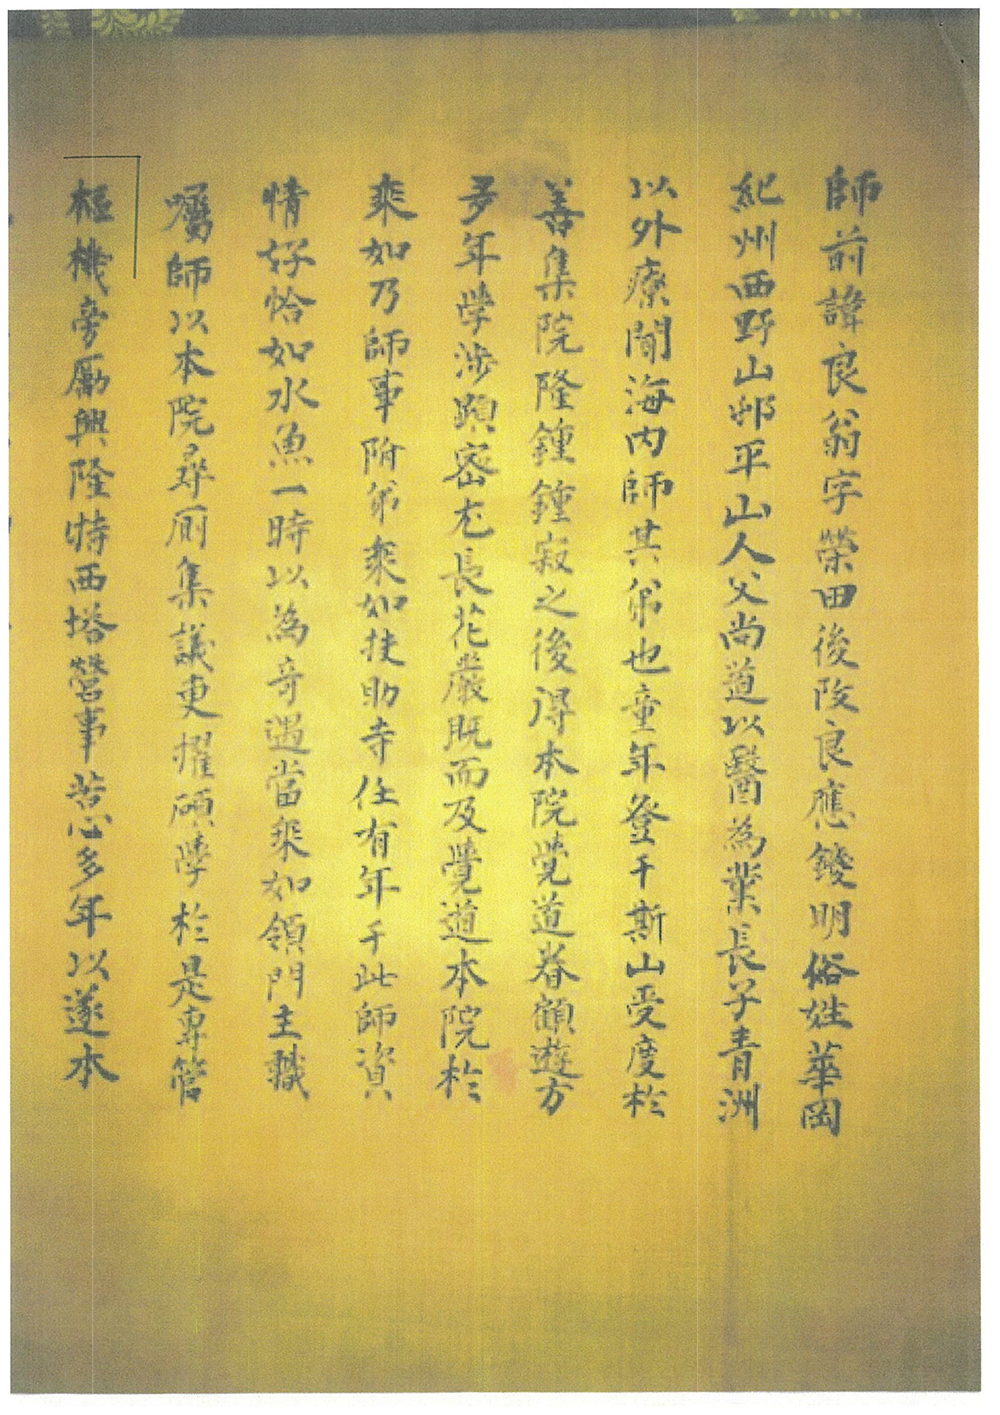 師前諱良翁字榮田後改良應錂明俗姓華岡
紀州西野山邨平山人父尚道以醫為業長子青洲
以外療聞海内師其弟也童年登于斯山受度於
善集院隆鍾鍾寂之後得本院覚道眷顧遊方
多年學涉顕密尤長花嚴既而及覺道本院於
乘如乃師事附弟乘如扶助寺住有年于此師資
情好恰如水魚一時以為奇遇當乘如領門主職
囑師以本院尋厠集議更擢碩學於是專管
樞機旁勵興隆特西塔營事苦心多年以遂本